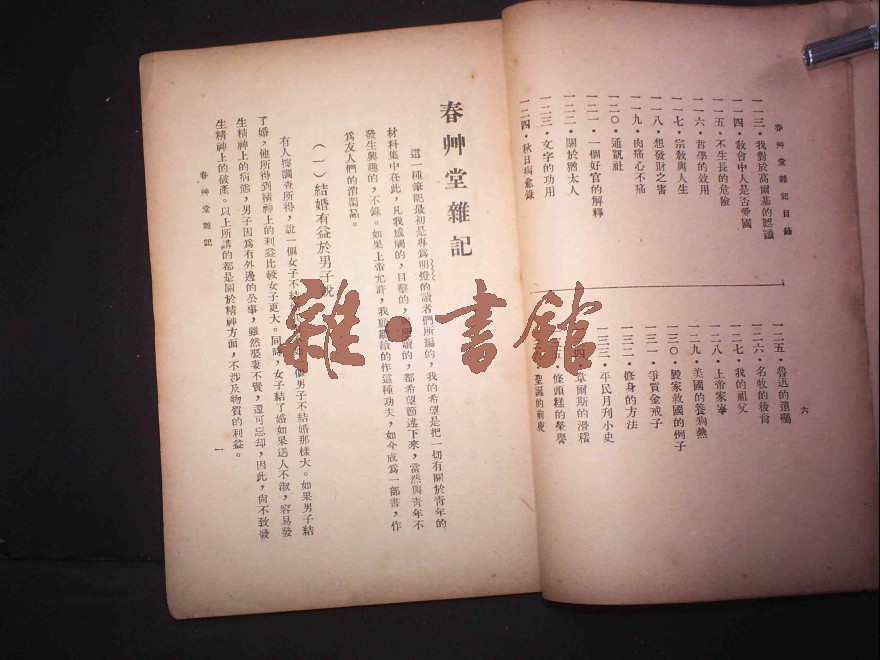 春艸堂雜記目錄
一一三·我對於高爾基的認識
一一四·教會中人是否愛國
一一五·不生長的危險
一一六·哲學的效用
一一七·宗教與人生
一一八·想發財之害
一一九·肉痛心不痛
一二〇·通訊社
一二一·一個好官的解釋
一二二·關於猶太人
一二三·文字的功用
一二四·秋日病愈錄
一二五·魯迅的遺囑
一二六·名牧的後裔
一二七·我的祖父
一二八·上帝家
一二九·美國的養狗熱
一三〇·毀家救國的例子
一三一·爭買金戒子
一三二·修身的方法
一三三·平民月刋小史
四·韋爾斯的滑稽
五·條頭糕的榮譽
聖誕的前夜
六
春艸堂雜記
這一種筆記最初是專爲明燈的讀者們所編的，我的希望是把一切有關於靑年的
材料集中在此，凡我感觸的，目擊的，所讀的，都希望節述下來，當然與靑年不
發生興趣的，不錄。如果上帝允許，我願繼續的作這種功夫，如今成爲一部書，作
爲友人們的消閒品。
（一）結婚有益於男子說
有人據調查所得，說一個女子不結婚男子不結婚那樣大。如果男子結
了婚，他所得到精神上的利益比較女子更大。同時，女子結了婚如果遇人不淑，容易發
生精神上的病態，男子因爲有外邊的公事，雖然娶妻不賢，還可忘却，因此，尙不致發
生精神上的破產。以上所講的都是關於精神方面，不涉及物質的利益。
春艸堂雜記
一
雜·書館